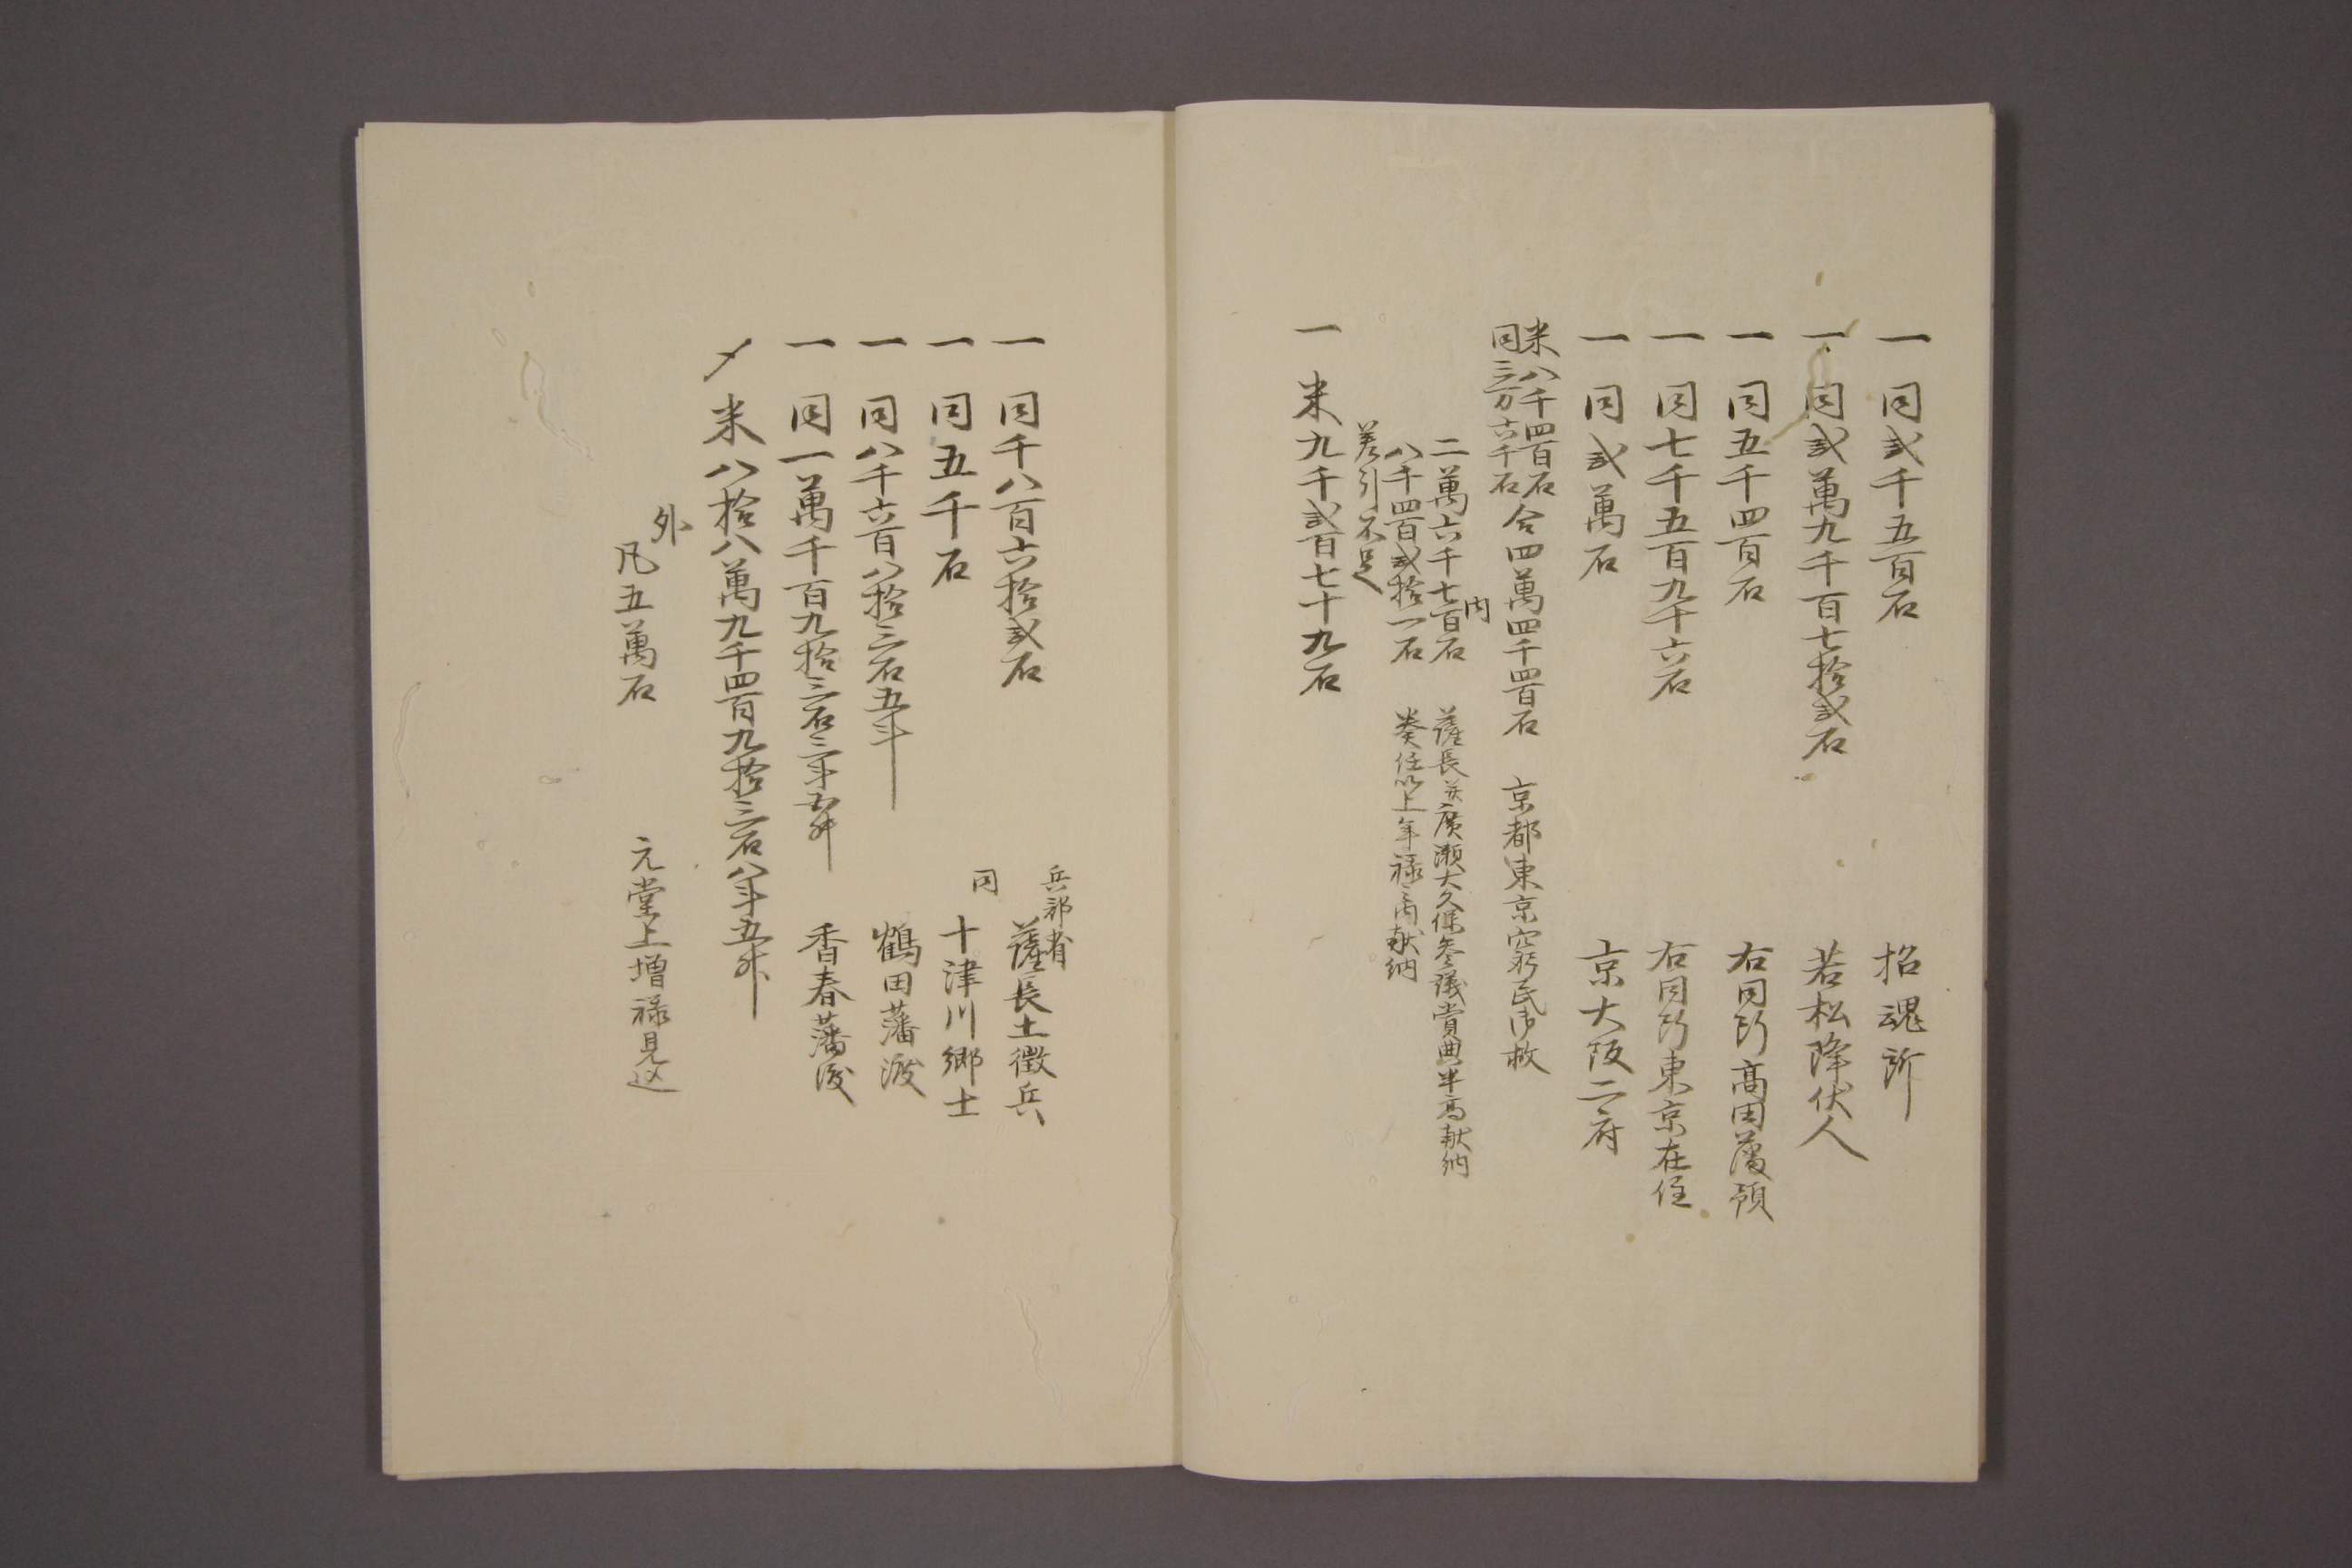 一 同貳千五百石 招魂所
一 同貳萬九千百七拾貳石 若松降伏人
一 同五千四百石 右同断高田藩預
一 同七千五百九十六石 右同断東京在住
一 同貳萬石 京大阪二府
米八千四百石
同三万六千石
合四萬四千四百石 京都東京窮民御救
内
二萬六千七百石 薩長并廣瀬大久保参議賞典半高献納
八千四百貳拾一石 奏任以上年禄之内献納
差引不足
一 米九千貳百七十九石
一 同千八百六拾貳石 兵部省 薩長土徴兵
一 同五千石 同 十津川郷士
一 同八千六百八拾三石五斗 鶴田藩渡
一 同一萬千百九拾三石三斗五升 香春藩渡
〆 米八拾八萬九千四百九拾三石八斗五升
外
凡五萬石 元堂上増禄見込